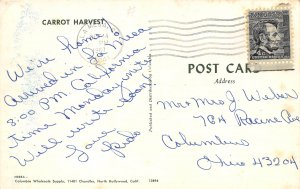 CARROT HARVEST
We're home
Arrived in La Mesa
8:00 P.M. California
time Monday nite
Will write soon
Love
POST CARD
Mr & Mrs J Weber
784 Racine Ave
Columbus
Ohio 43204
Columbia Wholesale Supply, 11401 Chandler, North Hollywood, Calif.